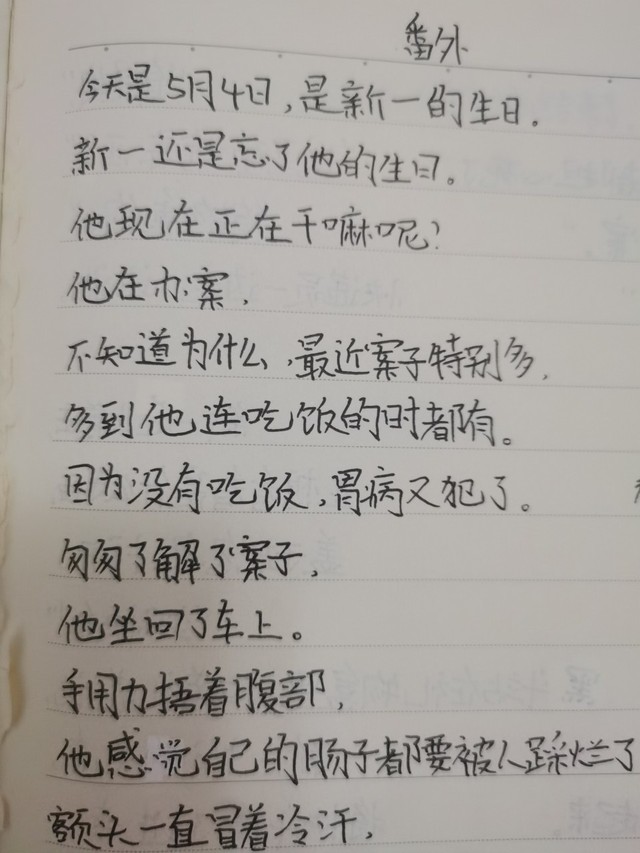 番外
今天是5月4日,是新一的生日.
新一还是忘了他的生日。
他现在正在干嘛呢?
他在办案,
不知道为什么,最近案子特别多,
多到他连吃饭的时都有。
因为没有吃饭,胃病又犯了。
匆匆了解了案子,
他坐回了车上。
手用力捂着腹部,
他感觉自己的肠子都要被人踩烂了
额头一直冒着冷汗,